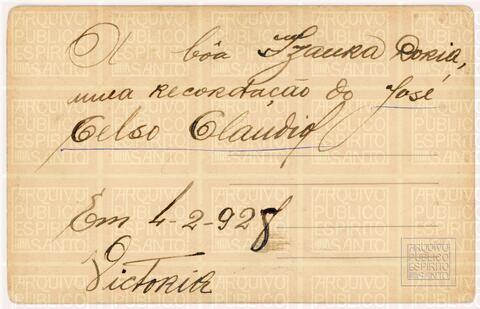 A bôa Izaura Doria,
uma recordação do José
Celso Claudio
Em 4-2-928
Victoria
ARQUIVO
PÚBLICO
ESPÍRITO
SANTO